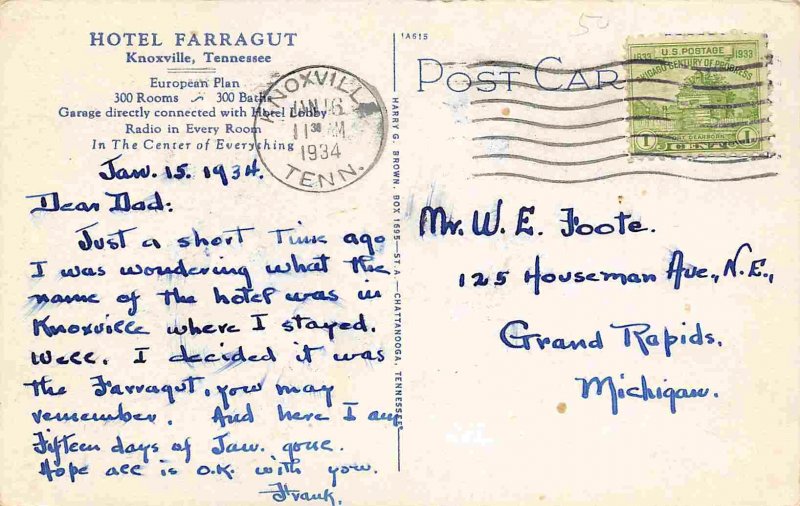 HOTEL FARRAGUT
Knoxville, Tennessee
European Plan
300 Rooms ~ 300 Baths
Garage directly connected with Hotel Lobby
Radio in Every Room
In The Center of Everything
Jan. 15. 1934.
Dear Dad:
Just a short time ago
I was wondering what the
name of the hotel was in
Knoxville where I stayed.
Well. I decided it was
the Farragut, you may
remember. And here I am
Fifteen days of Jan. gone.
Hope all is O.K. with you.
Frank.
KNOXVILLE
JAN 16
11 30 AM
1934
TENN.
1A615
HARRY G. BROWN. BOX 1695—ST. A.—CHATTANOOGA, TENNESSEE
50
POST CARD
U.S. POSTAGE
1833 1933
CHICAGO CENTURY OF PROGRESS
FORT DEARBORN
1 CENT 1
Mr. W. E. Foote.
125 Houseman Ave., N.E.,
Grand Rapids.
Michigan.